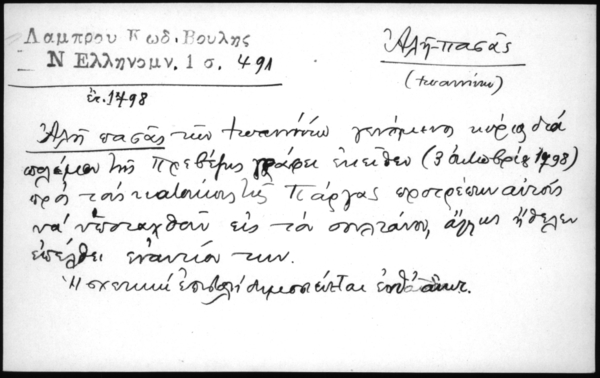 Λαμπρου Κωδ. Βουλης
Ν Ελληνομν. 1 σ. 491
Ἀλῆ-πασᾶς
(Ἰωαννίνων)
ἔτ. 1798
Ἀλῆ πασᾶς τῶν Ἰωαννίνων γενόμενος κύριος διὰ
πολέμου τῆς Πρεβέζης γράφει ἐκεῖθεν (3 ὀκτωβρίου 1798)
πρὸς τοὺς κατοίκους τῆς Πάργας προτρέπων αὐτοὺς
νὰ ὑποταχθοῦν εἰς τὸν σουλτάνον, ἄλλως ἤθελεν
ἐπέλθει ἐναντίον των.
Ἡ σχετικὴ ἐπιστολὴ δημοσιεύεται